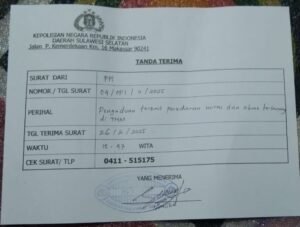 KEPOLISIAN NEGARA REPUBLIK INDONESIA
DAERAH SULAWESI SELATAN
Jalan P. Kemerdekaan Km. 16 Makassar 90241
TANDA TERIMA
SURAT DARI : PM
NOMOR / TGL SURAT : 2025
PERIHAL : Pengaduan peredaran miras dan
di
TGL TERIMA SURAT : 26/2/2025
WAKTU : 12.47 WITA
CEK SURAT/ TLP : 0411 - 515175
YANG MENERIMA